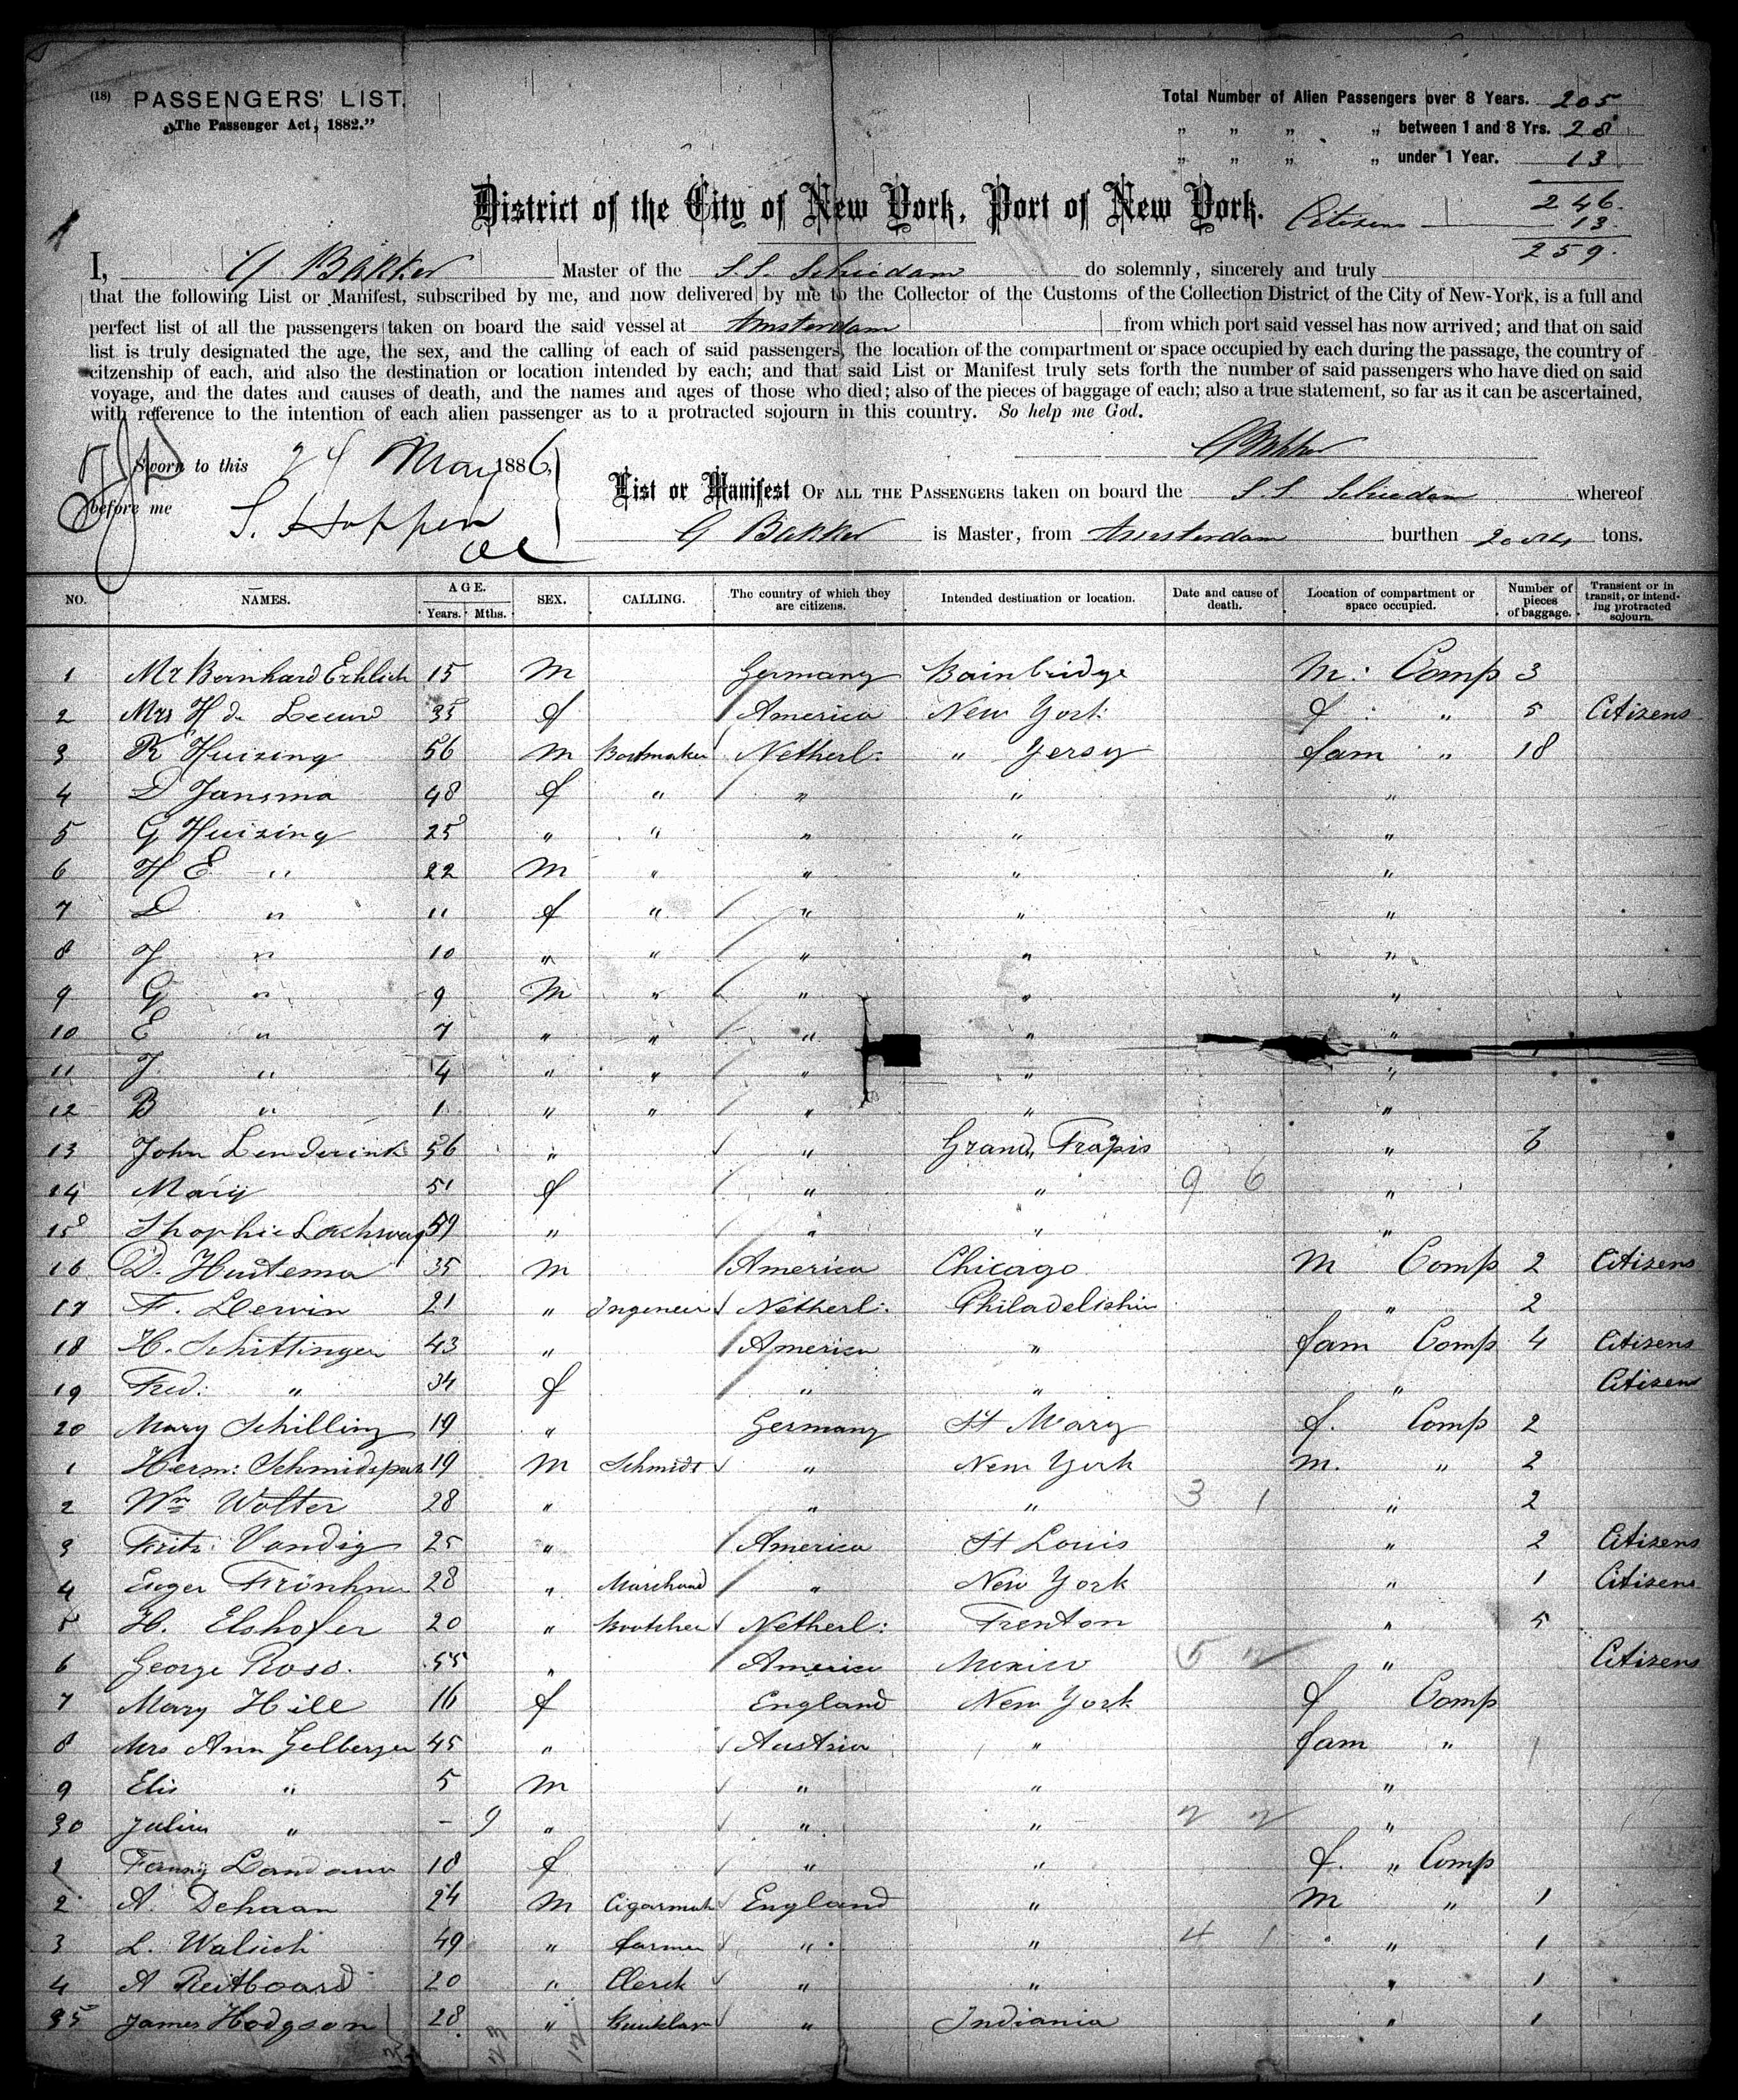 (18) PASSENGERS' LIST.
"The Passenger Act, 1882."
Total Number of Alien Passengers over 8 Years. 205
" " " " between 1 and 8 Yrs. 28
" " " " under 1 Year. 13
246.
District of the City of New York, Port of New York. Citizens 13.
259.
I, G Bakker Master of the S.S. Schiedam do solemnly, sincerely and truly
that the following List or Manifest, subscribed by me, and now delivered by me to the Collector of the Customs of the Collection District of the City of New-York, is a full and
perfect list of all the passengers taken on board the said vessel at Amsterdam from which port said vessel has now arrived; and that on said
list is truly designated the age, the sex, and the calling of each of said passengers, the location of the compartment or space occupied by each during the passage, the country of
citzenship of each, and also the destination or location intended by each; and that said List or Manifest truly sets forth the number of said passengers who have died on said
voyage, and the dates and causes of death, and the names and ages of those who died; also of the pieces of baggage of each; also a true statement, so far as it can be ascertained,
with reference to the intention of each alien passenger as to a protracted sojourn in this country. So help me God.
GBakker
Sworn to this 24 May 1886,
before me S. Hoppen
List or Manifest OF ALL THE PASSENGERS taken on board the S.S Schiedam whereof
G Bakker is Master, from Amsterdam burthen tons.
NO. NAMES. AGE. Years. Mths. SEX. CALLING. The country of which they are citizens. Intended destination or location. Date and cause of death. Location of compartment or space occupied. Number of pieces of baggage. Transient or in transit, or intending protracted sojourn.
1 Mr Bernhard Erhlich 15 M Germany Bainbridge M: Comp 3
2 Mrs H de Leeuw 35 f America New York f: " 5 Citizens
3 R Huizing 56 M Bootmaker Netherl: " Yersy fam " 18
4 D Jansma 48 f " " " "
5 G Huizing 25 " " " " "
6 H E " 22 M " " " "
7 D " 11 f " " " "
8 J " 10 " " " " "
9 G " 9 M " " " "
10 E " 7 " " " " "
11 J " 4 " " " " "
12 B " 1 " " " " "
13 John Lenderink 56 " " Grand Frapis " 6
14 Mary 51 f " " 9 6 "
15 Shophie 59 " " " "
16 D. Huitema 35 M America Chicago M Comp 2 Citizens
17 F. Lervin 21 " Ingeneir Netherl: Philadelphia " 2
18 H. Schittinger 43 " America " fam Comp 4 Citizens
19 Fred: " 34 f " " " Citizen
20 Mary Schilling 19 " Germany St Mary f. Comp 2
1 Herm: 19 M Schmidt " New York M. " 2
2 Wm Wolter 28 " " " 3 1 " 2
3 Fritz Vandig 25 " America St Louis " 2 Citizens
4 Euger 28 " Marchand " New York " 1 Citizens
5 H. Elshofer 20 " Bootcher Netherl: Trenton " 5
6 George Ross. 55 " America Mexico 5 2 " Citizens
7 Mary Hill 16 f England New York f Comp
8 Mrs Ann Gelberger 45 " Austria " fam " 1
9 Elis " 5 M " " "
30 Julius " - 9 " " " 2 2 "
1 Fanny Landauw 18 f " " f. " Comp
2 A. Dehaan 24 M Cigarmak England " M " 1
3 L. Walsich 49 " farmer " " 4 1 " 1
4 A Reitboard 20 " Clerck " " " 1
35 James Hodgson 28 " " Indiania " 1